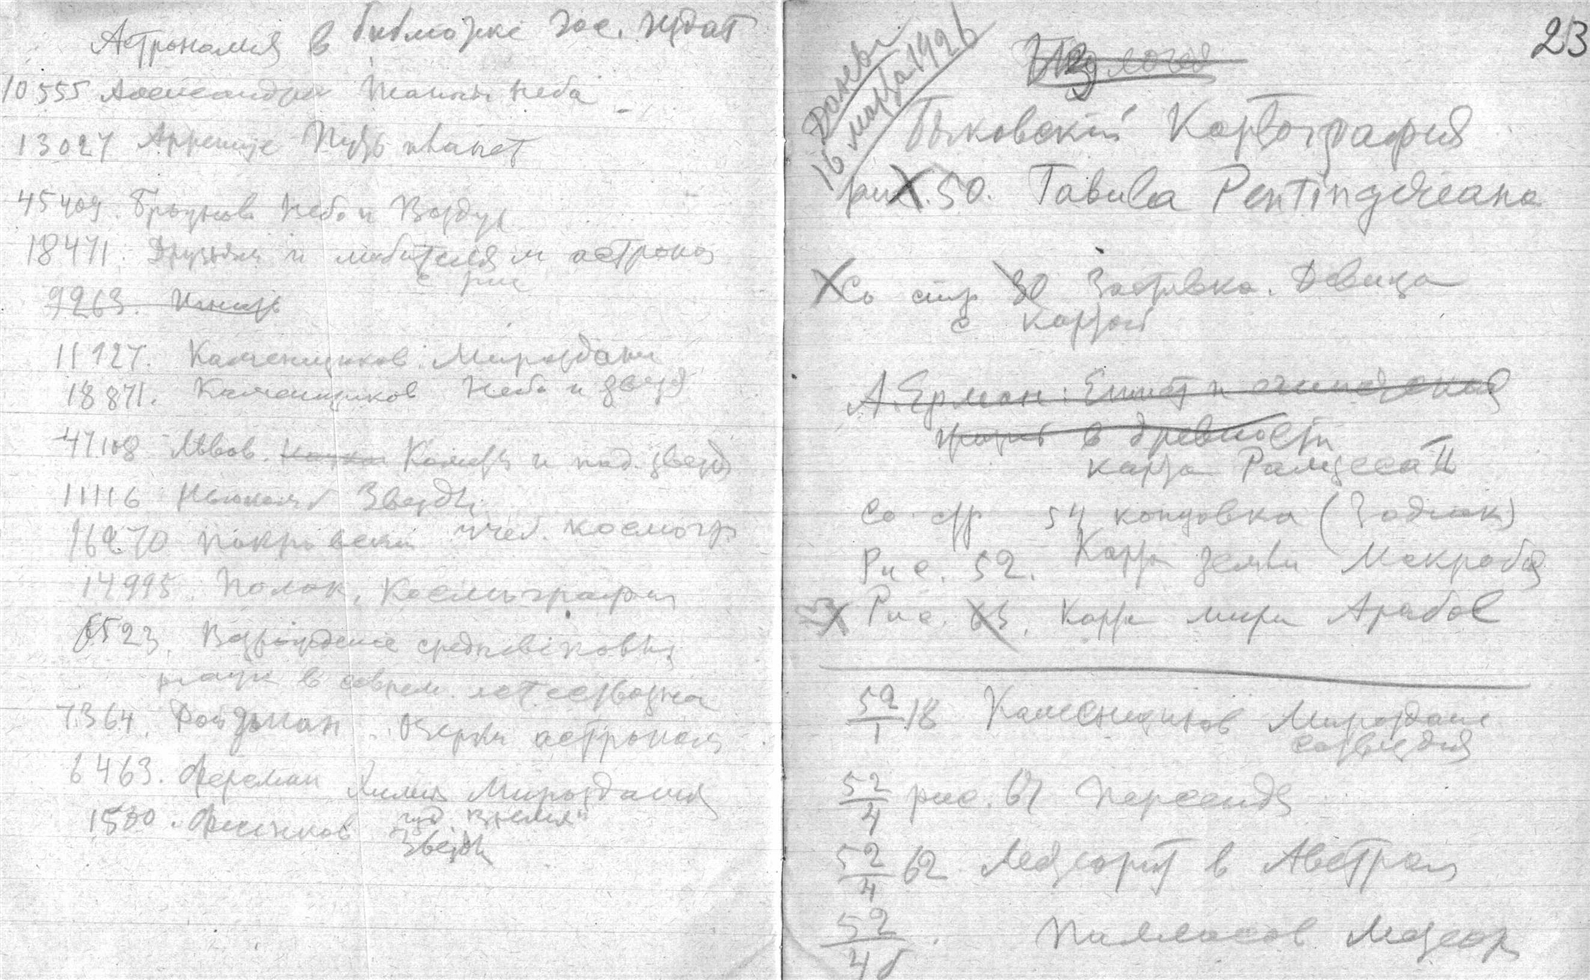 Астрономия в библиотеке Гос. Издат
10555 Александров Тайны неба
13027 Аррениус Путь планет
45409. Броунов Небо и Воздух
18471. Друзьям и любителям астроном
с рис
9263.
11927. Каменщиков. Мироздание
18871. Каменщиков Небо и звезд
47108 Львов. Кометы и пад. звезд
11116 Ньюкомб Звезды
16270 Покровский Учеб. космогр
14995. Полак. Космография
6523. Возрождение средневековых
наук в соврем. естествозна
7364. Фойдман. Очерки астроном
6463. Ферсман Химия Мироздания
1500. Фесенков изд "Время"
Звезды
23
16 марта 1926
Быковский Картография
рис. 50. Tabula Pentingereana
Со стр 30 Заставка. Девица
с картой
А. Ерман: Египет и египетская
жизнь в древности
карта Рамзеса II
Со стр 54 концовка (Зодиак)
Рис. 52. Карта земли Макробия
Рис. 63. Карта мира Арабов
52/1 18 Каменщиков Мироздание
созвездия
52/4 рис. 61 Персеиды
52/4 62 Метеорит в Австрал
52/4 б. Палласов Метеор